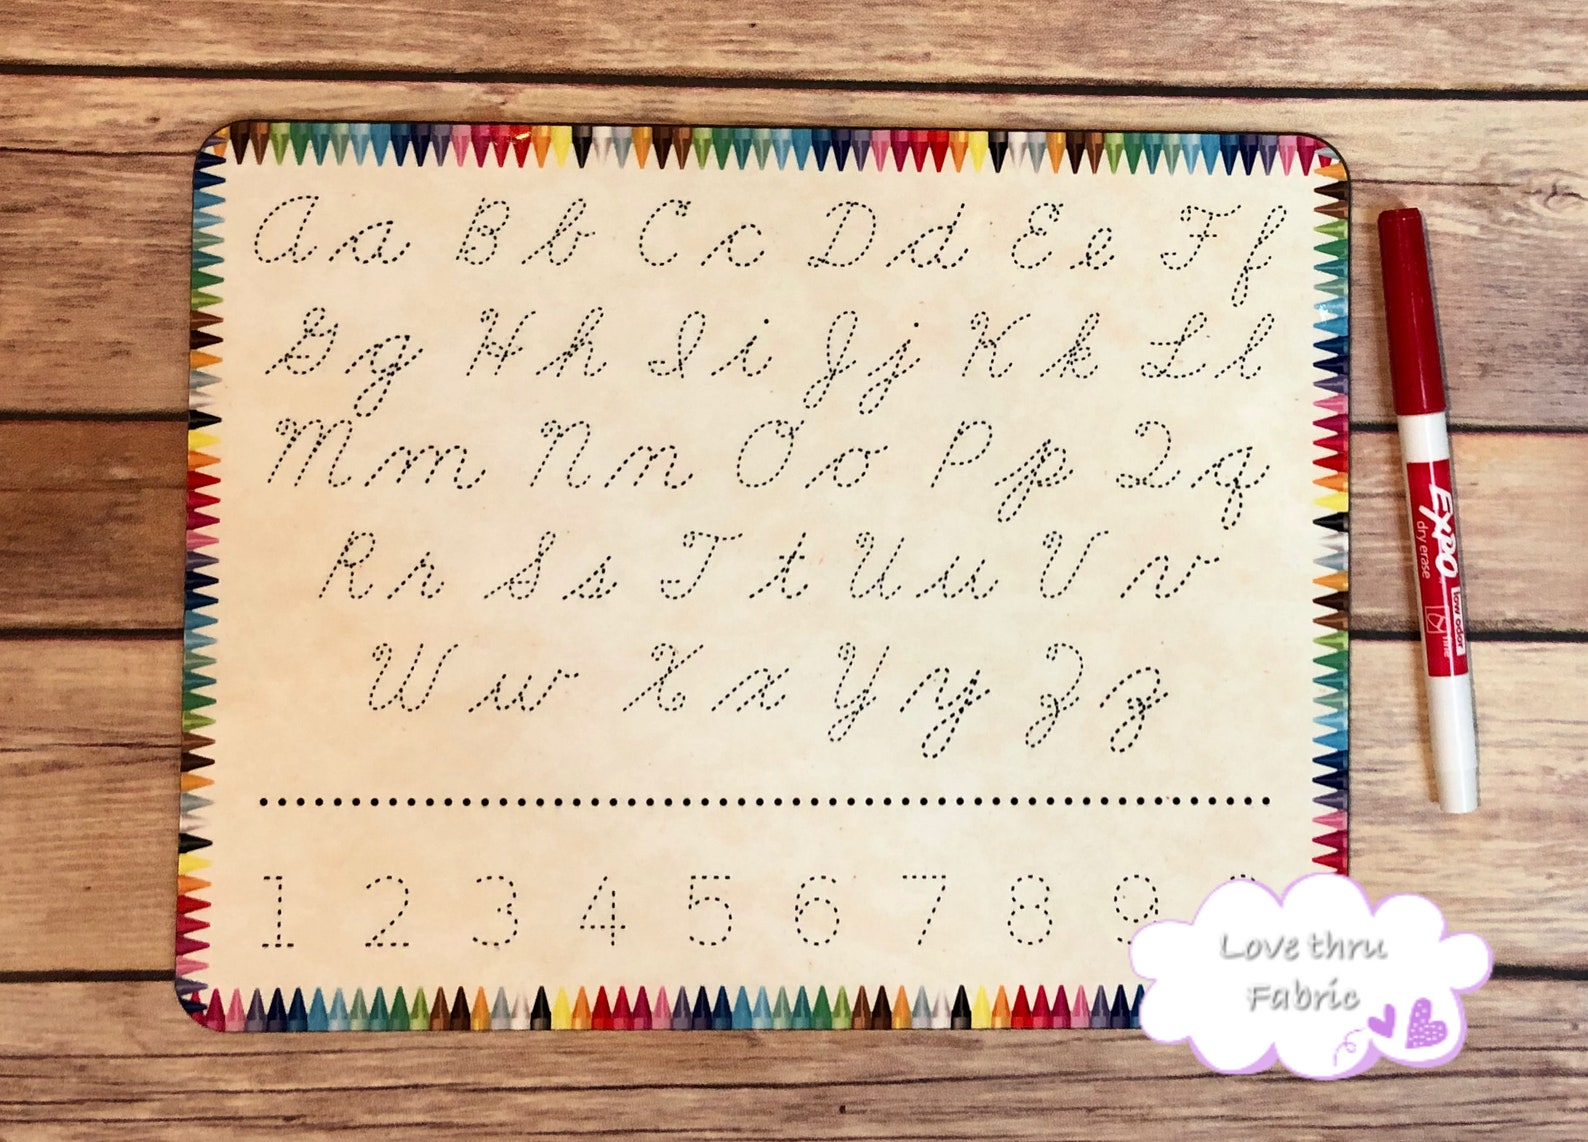 Aa Bb Cc Dd Ee Ff
Gg Hh Ii Jj Kk Ll
Mm Nn Oo Pp Qq
Rr Ss Tt Uu Vv
Ww Xx Yy Zz
1 2 3 4 5 6 7 8 9
EXPO
dry erase
low odor
fine
Love thru
Fabric